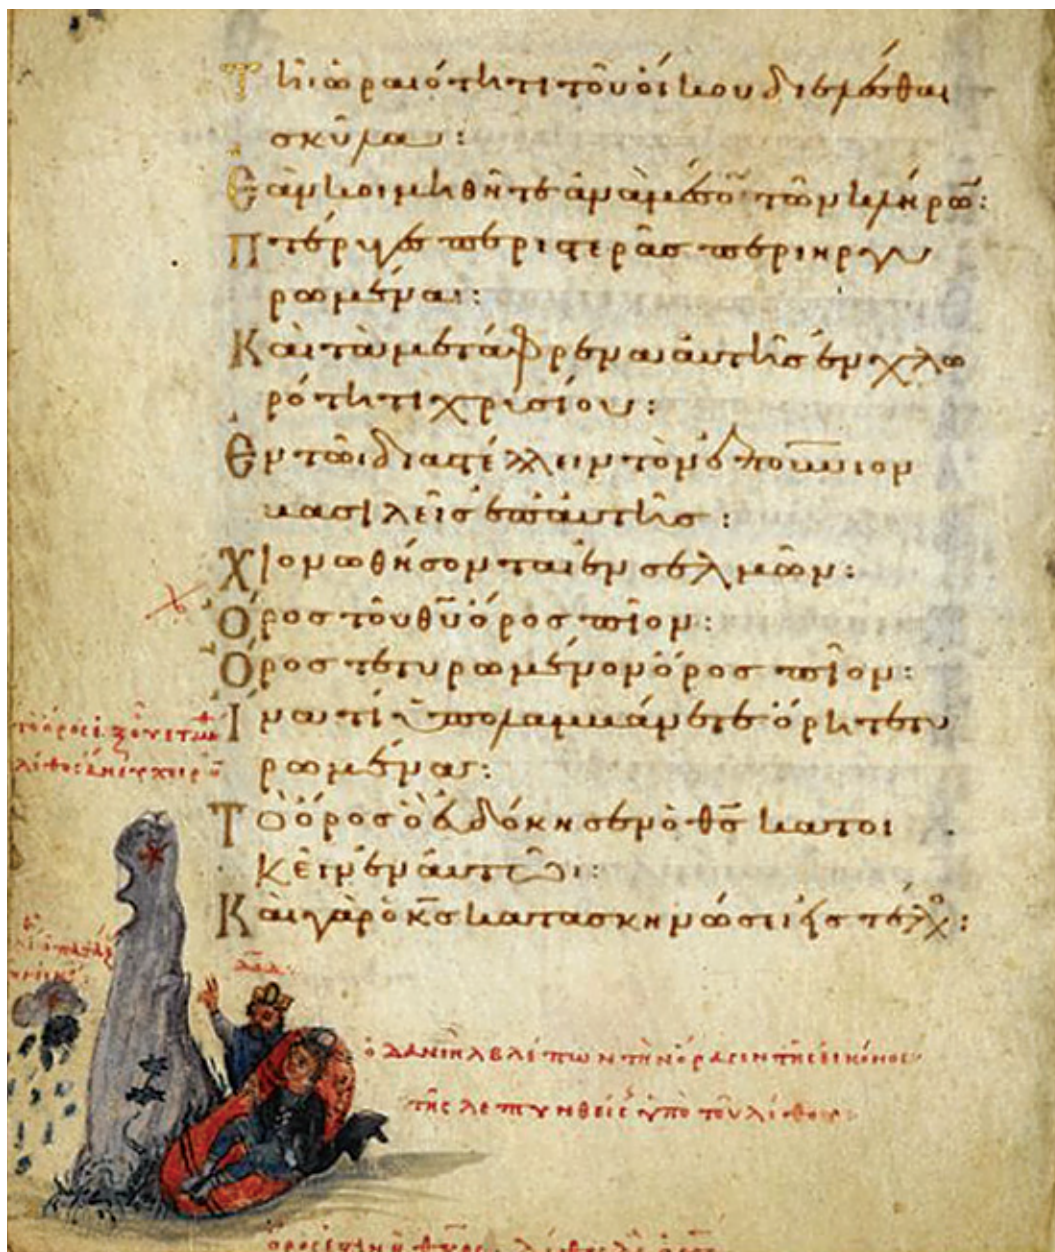 Τῆι ὡραιότητι τοῦ οἴκου διελέσθαι
σκῦλα:
Ἐὰν κοιμηθῆτε ἀναμέσο τῶν κλήρω:
Πτέρυγες περιστερᾶς περιηργυ
ρωμέναι:
Καὶ τὰ μετάφρενα αὐτῆς ἐν χλω
ρότητι χρυσίου:
Ἐν τῶι διαστέλλειν τὸν ἐπουνιον
βασιλεῖς ἐπαὐτῆς:
Χιονωθήσονται ἐν σελμῶν:
Ὄρος τοῦ θυ ὄρος πῖον:
Ὄρος τετυρωμένον ὄρος πῖον:
Ἱνατί ὑπολαμβάνετε ὄρη τετυ
ρωμένα:
Τὸ ὄρος ὃ εὐδόκησεν ὁ θς κατοι
κεῖν ἐν αὐτῶι:
Καὶ γὰρ ὁ κς κατασκηνώσει εἰς τέλος:
τὸ ὄρος ἐξ οὗ ἐτμή
λίθος ἄνευ χειρῶ
ὁ Δανιὴλ βλέπων τὴν ὅρασιν τῆς εἰκόνος
τῆς λεπτυνθείς ὑπὸ τοῦ λίθου: